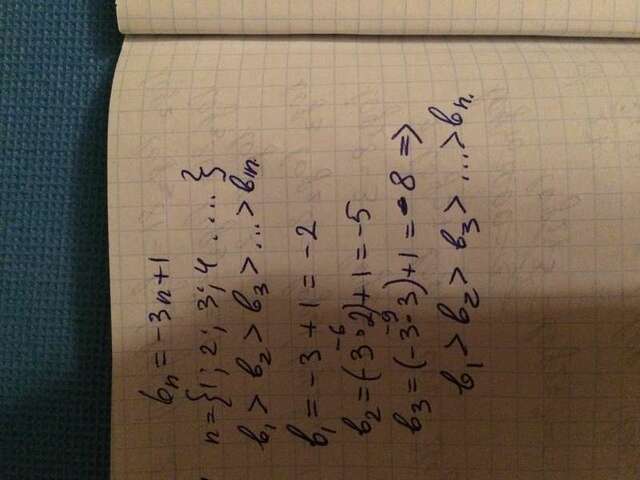 bn = -3n+1
n = {1; 2; 3; 4 ....}
b₁ > b₂ > b₃ > ... > bn.
b₁ = -3 + 1 = -2
-6
b₂ = (-3·2) + 1 = -5
-9
b₃ = (-3·3) + 1 = -8 =>
b₁ > b₂ > b₃ > ... > bn.